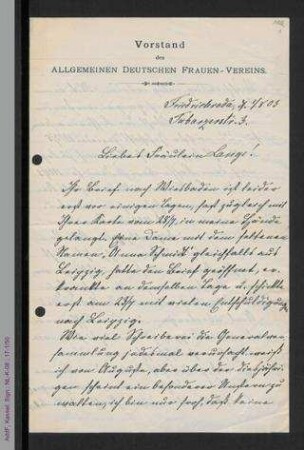 Vorstand
des
ALLGEMEINEN DEUTSCHEN FRAUEN-VEREINS.
Friedrichroda, d.
Tabarzerstr. 3.
Liebes Fräulein Lange!
Ihr Brief nach Wiesbaden ist leider
erst vor einigen Tagen, fast zugleich mit
Ihrer Karte vom in meine Hände
gelangt. Eine Dame mit dem seltenen
Namen "Anna Schmidt" gleichfalls aus
Leipzig, hatte den Brief geöffnet, er-
krankte an demselben Tage u. schickte
erst am mit vielen Entschuldigungen
nach Leipzig.
Wie viel Schreiberei die Generalver-
sammlung jedesmal verursacht, weiß
ich von Auguste, aber über der diesjähri-
gen scheint ein besonderer Unstern zu
walten; ich bin nur froh, daß keine